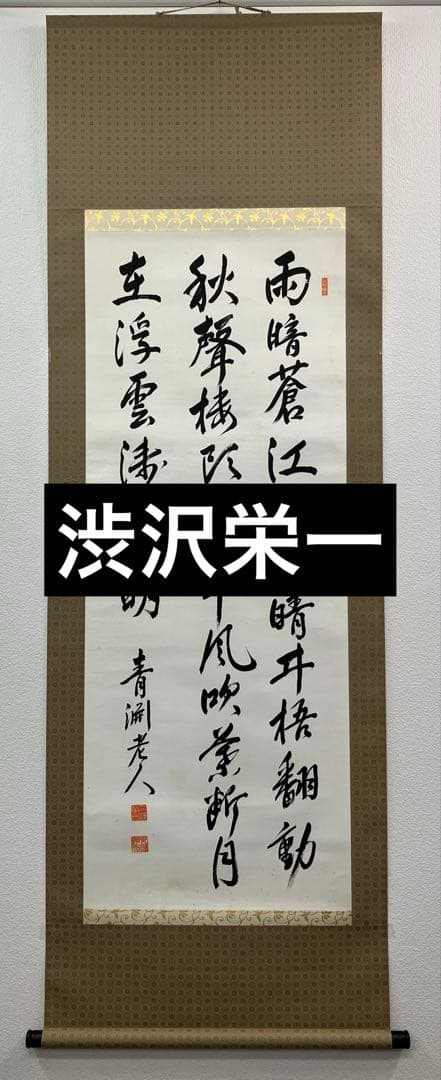 雨暗蒼江
晴井梧翻動
秋聲樓頭
半風吹葉断月
在浮雲淺
明
青淵老人
渋沢栄一